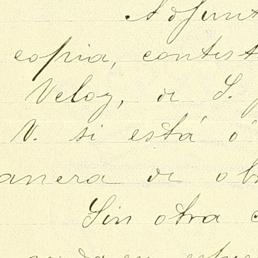 Adjunt
copia, contest
Veloz, de S.
V. si está ó
anera de ob
Sin otra